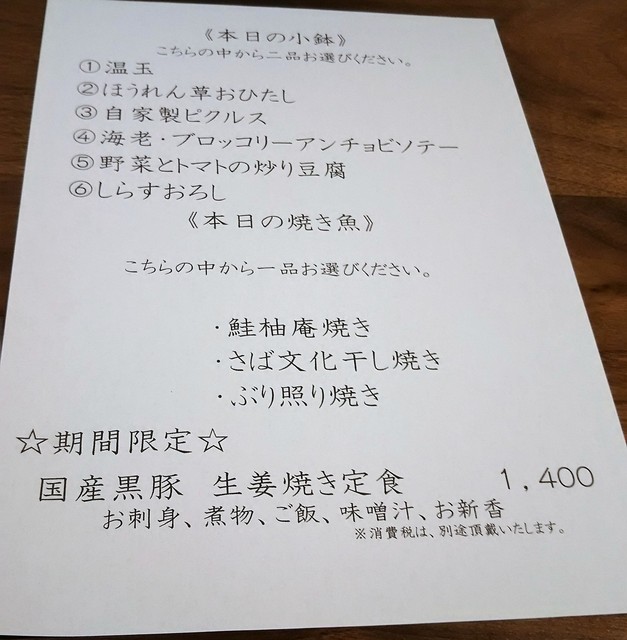 《本日の小鉢》
こちらの中から二品お選びください。
①温玉
②ほうれん草おひたし
③自家製ピクルス
④海老・ブロッコリーアンチョビソテー
⑤野菜とトマトの炒り豆腐
⑥しらすおろし
《本日の焼き魚》
こちらの中から一品お選びください。
・鮭柚庵焼き
・さば文化干し焼き
・ぶり照り焼き
☆期間限定☆
国産黒豚 生姜焼き定食 1,400
お刺身、煮物、ご飯、味噌汁、お新香
※消費税は、別途頂戴いたします。